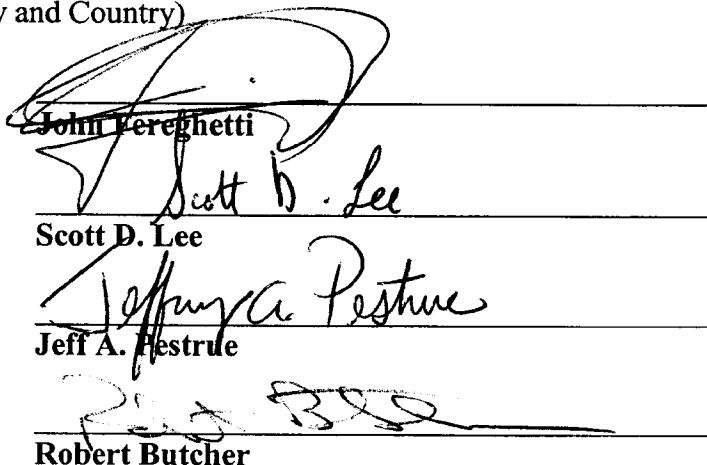 y and Country)
John Fereghetti
Scott D. Lee
Scott D. Lee
Jeffrey A. Pestrue
Jeff A. Pestrue
Robert Butcher